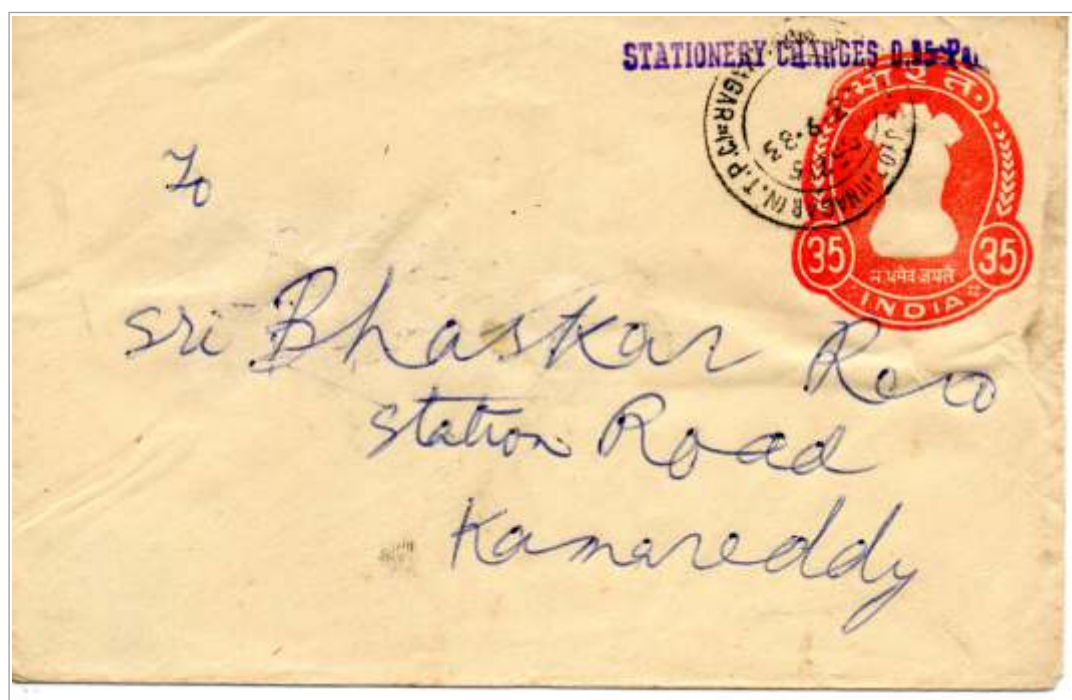 STATIONERY CHARGES 0.05
भारत
35 35
सत्यमेव जयते
INDIA
(N.T.P.C)
To
Sri Bhaskar Rao
Station Road
Kamareddy